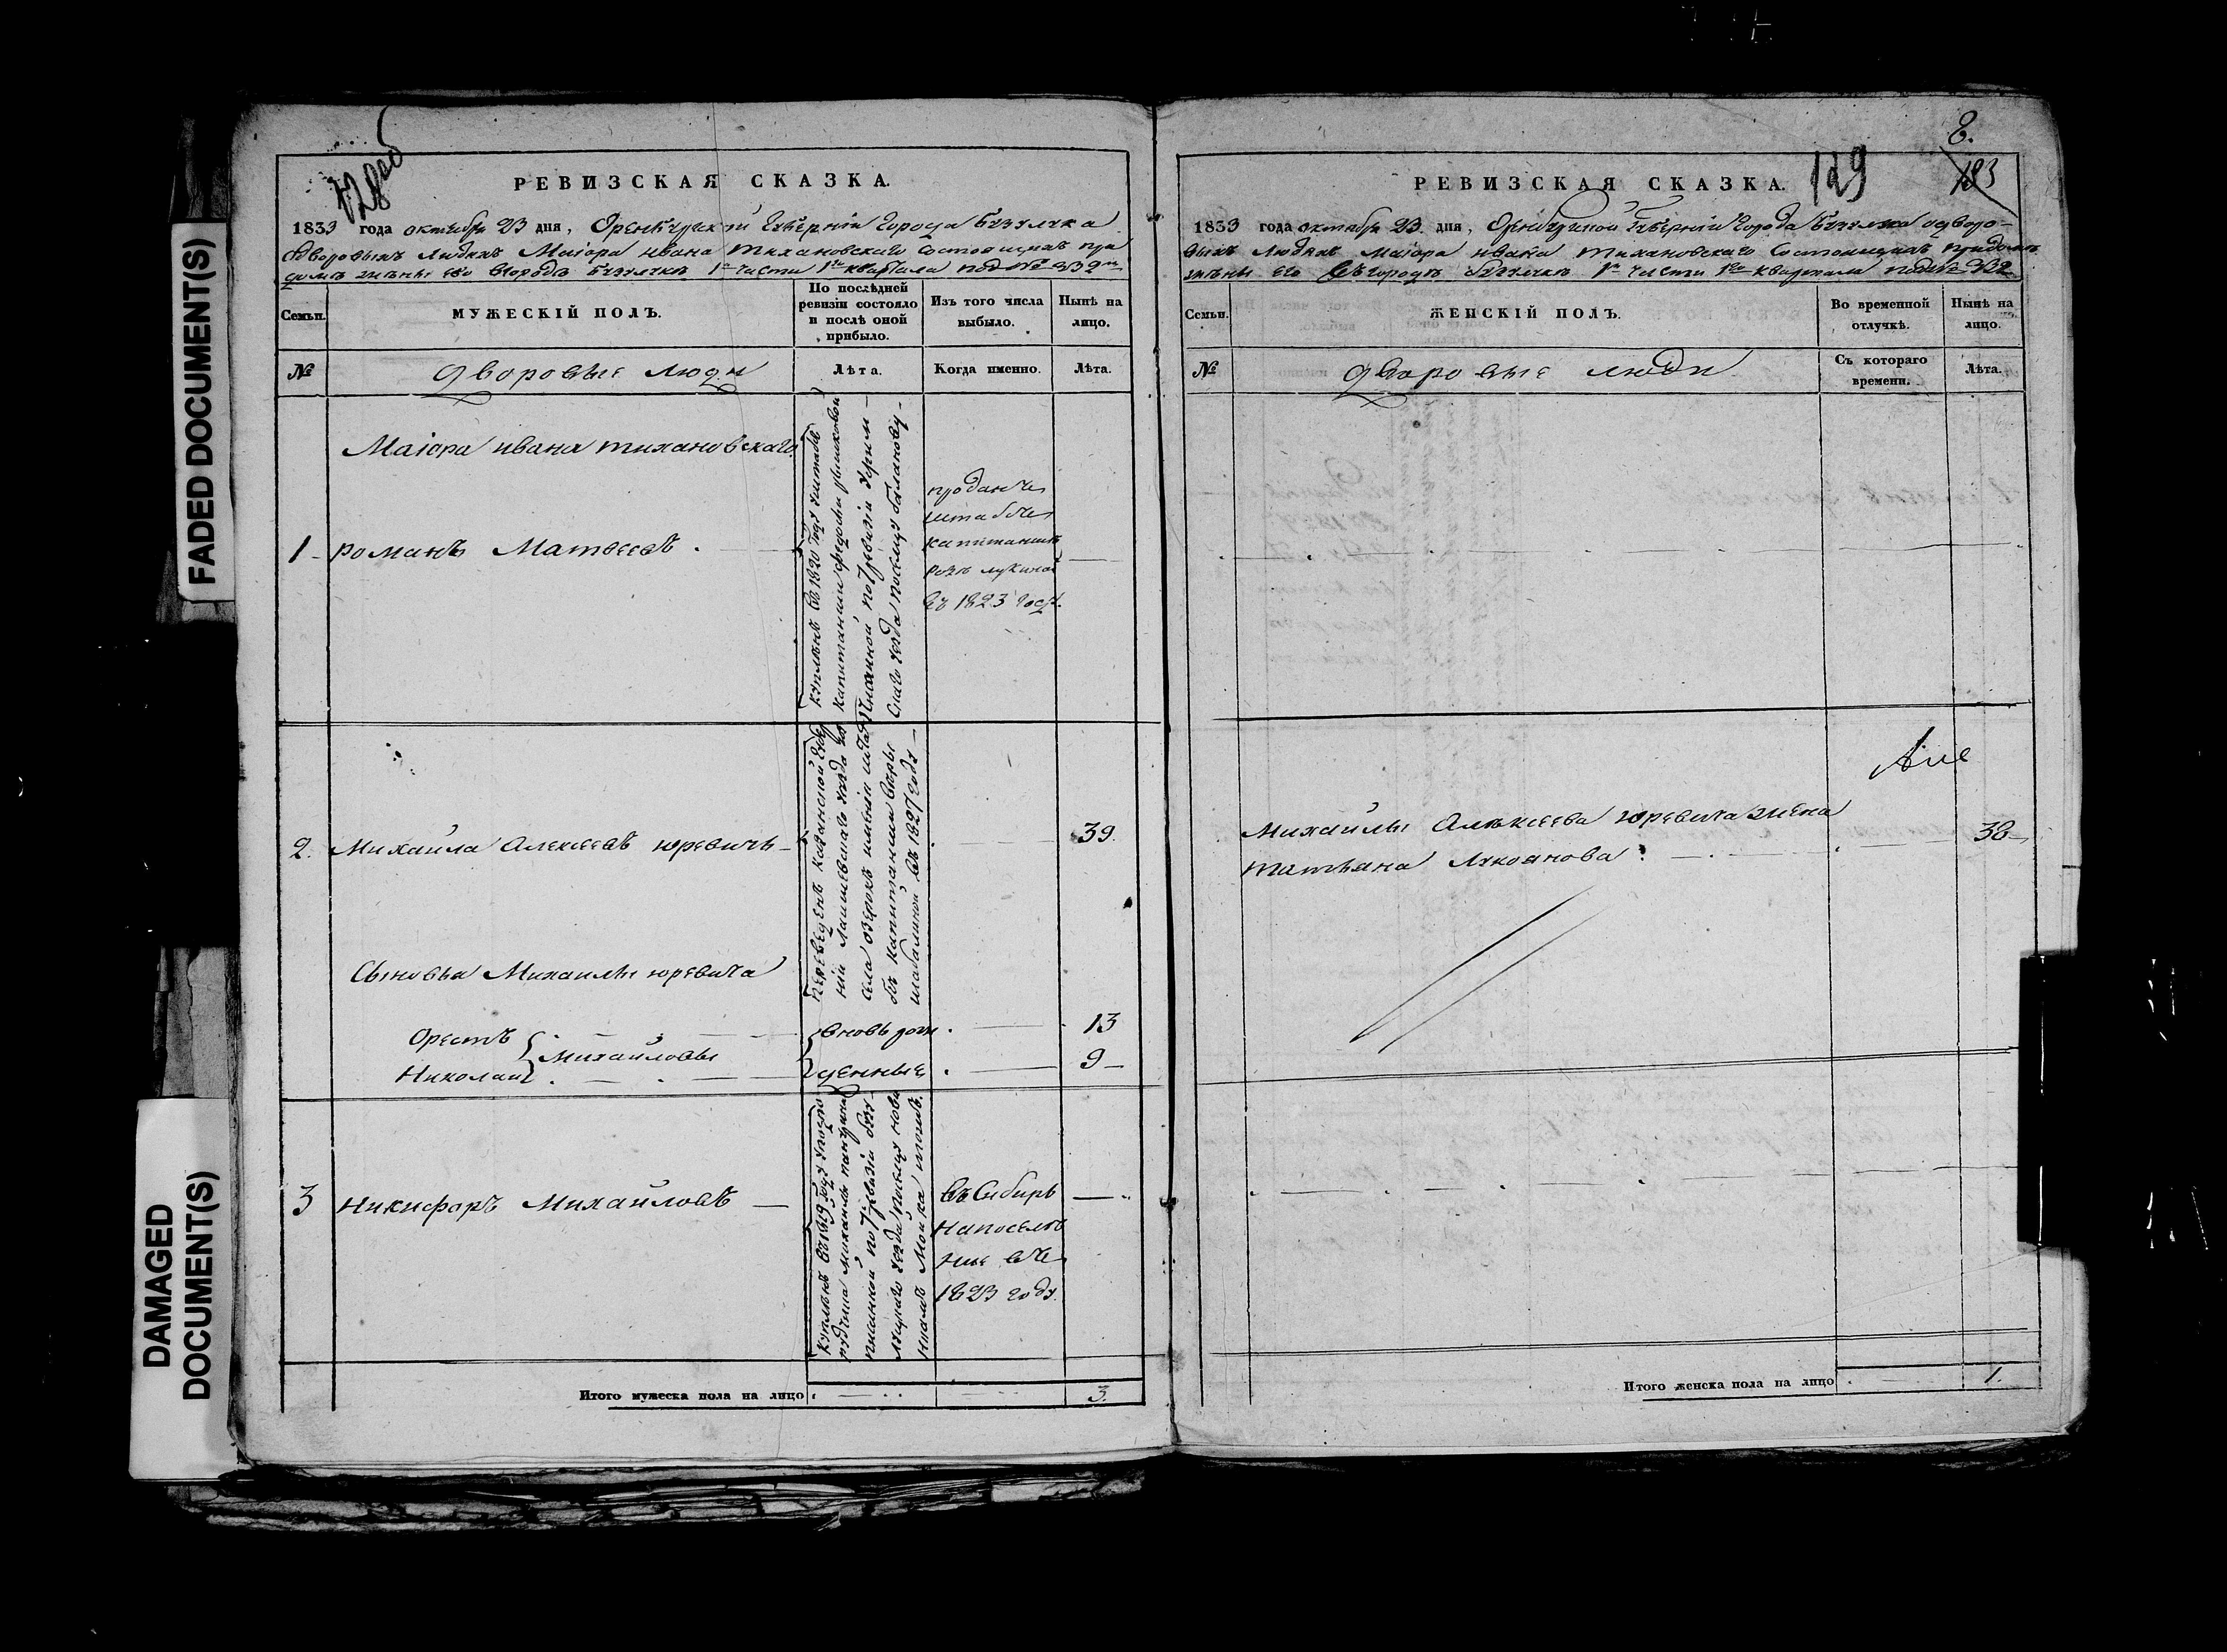 FADED DOCUMENT(S)
DAMAGED
DOCUMENT(S)
128 об
РЕВИЗСКАЯ СКАЗКА.
1833 года октября 23 дня, Оренбургской Губерніи Города Бузулука
дворовымъ людямъ Маіора Ивана Тихановскаго состоящимъ при
домѣ жены его въ городѣ Бузулукѣ 1й части 1го квартала под № 332м
Семьи.
МУЖЕСКІЙ ПОЛЪ.
По послѣдней
ревизіи состояло
и послѣ оной
прибыло.
Изъ того числа
выбыло.
Нынѣ на
лицо.
№
Дворовые люди
Лѣта.
Когда именно.
Лѣта.
Маіора Ивана Тихановскаго
1 Романъ Матвеевъ
купленъ въ 1820 году уштабъ
капитанши
писанной по 7 ревизіи
уезда
проданъ
штабсъ
капитаншѣ
Розѣ Лукиной
въ 1823 году.
2. Михаила Алексеевъ Юревичь
переведенъ Казанской Губер
ніи Лаишевскаго уезда из
села Озерокъ имѣнія штаб
съ капитанши Веры
Шабалиной въ 1827 году
39.
Сыновья Михаилы Юревича
Орестъ
Михайловы
Николай
вновь рож
денные
13
9
3 Никифоръ Михайловъ
купленъ въ 1819 году
Михаилы
писанной по 7 ревизіи бузу
луцкаго уезда
въ Сибирь
на поселѣ
ніе въ
1823 году.
Итого мужеска пола на лицо
3.
8.
129
183
РЕВИЗСКАЯ СКАЗКА.
1833 года октября 23 дня, Оренбургской Губерніи Города Бузулука одворо-
выхъ людяхъ Маіора Ивана Тихановскаго состоящихъ при домѣ
жены его въ городѣ Бузулукѣ 1й части 1го квартала под № 332
Семьи.
ЖЕНСКІЙ ПОЛЪ.
Во временной
отлучкѣ.
Нынѣ на
лицо.
№
Дворовые люди
Съ котораго
времени.
Лѣта.
Михайлы Алексеева Юревича жена
Татьяна Лукоянова
38
Итого женска пола на лицо
1.